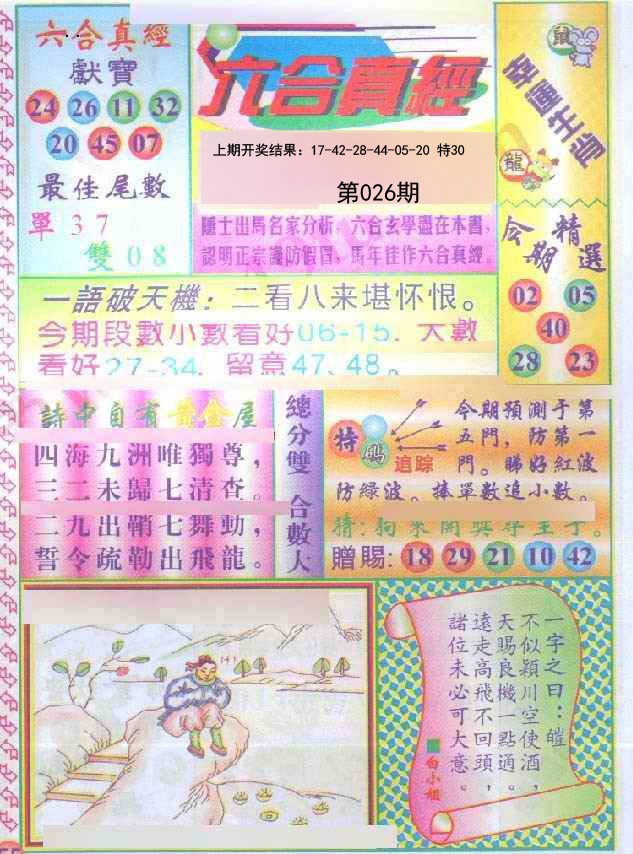 六合真經
獻寶
24 26 11 32
20 45 07
最佳尾數
單 3 7
雙 0 8
六合真經
上期开奖结果：17-42-28-44-05-20 特30
第026期
隱士出馬名家分析，六合玄學盡在本書，
認明正宗謹防假冒，馬年佳作六合真經。
鼠
幸運生肖
龍
今期精選
02 05
40
28 23
一語破天機：二看八来堪怀恨。
今期段數小數看好06-15．大數
看好27-34．留意47、48。
詩中自有黄金屋
四海九洲唯獨尊，
三二未歸七清查。
二九出鞘七舞動，
誓令疏勒出飛龍。
總分雙 合數大
特码
追踪
今期預測于第
五門，防第一
門。睇好紅波
防綠波。捧單數追小數。
贈賜：18 29 21 10 42
一字之曰：皚
不似穎川空使酒，
天賜良機一點通，
遠走高飛不回頭，
諸位未必可大意。
白小姐